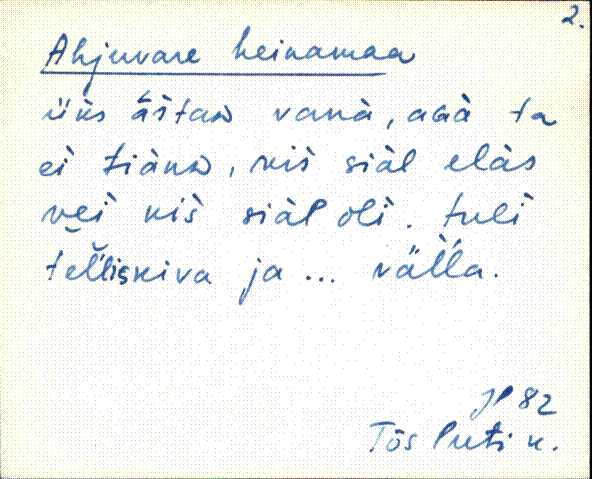 2.
Ahjuvare heinamaa
üks āštaᴅ vanà, aGà ta
ei tiänᴅ, kiš siäl eläs
vei kiš siäl oli. tuli
telliskiva ja ... välla.
JP 82
Tõs Puti k.